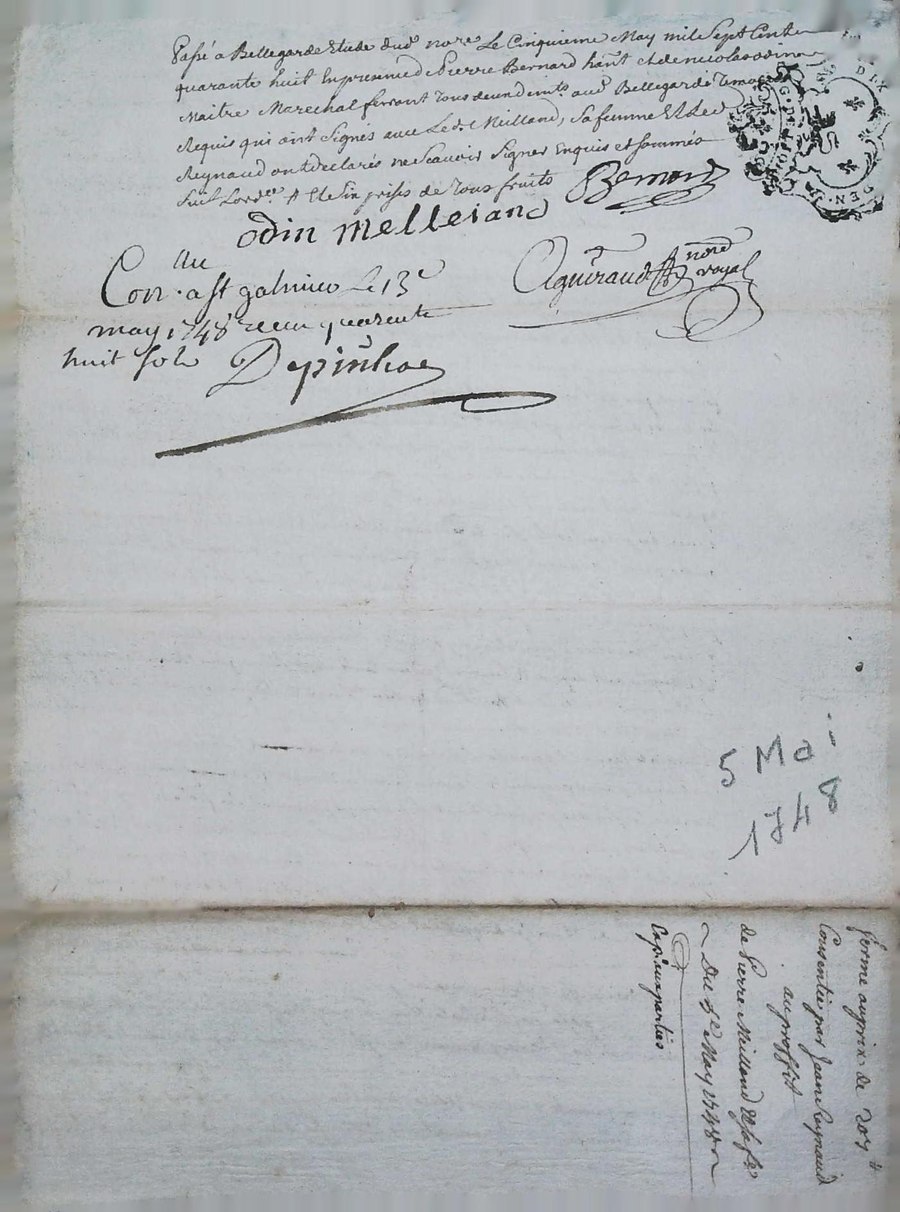 Passé a Bellegarde Etude dud. nore. Le Cinquieme May mil Sept Cent
quarante huit En presence de Pierre Bernard hant. et de nicolas odin
Maitre Marechal ferrant Tous deux dud. Bellegarde Temoins
Requis qui ont Signés avec Led. Meilland, Sa femme Et Led.
Reynaud ont declarés ne Scavoir Signer Enquis et sommés
Suit Lordce. de tous fruits
odin Melleiand Bernard
Aguiraud nore royal
Con. a St galmier Le 13e
may 1748 recu quarente
huit sols Depinhac
DIX DEN.
G. DE LYON
5 Mai
1748
ferme au prix de 207 tt
Consentie par Jean Reynaud
au proffit
de Pierre Meilland & sa fe
Du 5e May 1748